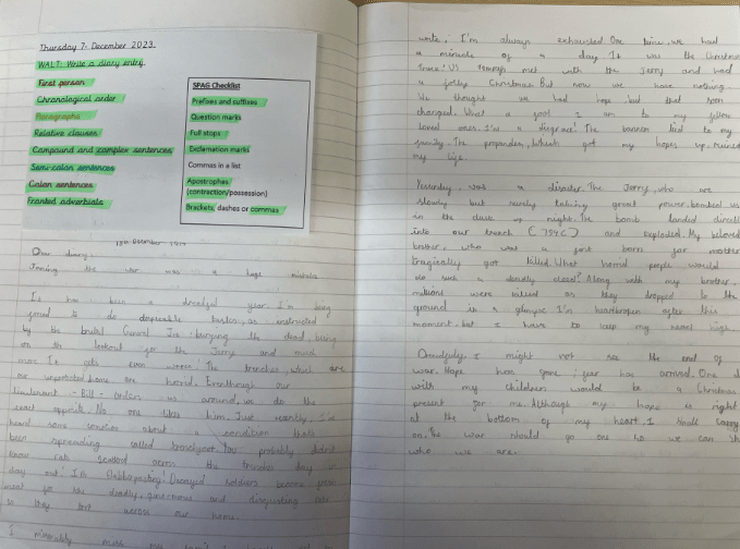 Thursday 7th December 2023.
WALT: Write a diary entry.
First person
Chronological order
Paragraphs
Relative clauses
Compound and complex sentences
Semi-colon sentences
Colon sentences
Fronted adverbials
SPAG Checklist
Prefixes and suffixes
Question marks
Full stops
Exclamation marks
Commas in a list
Apostrophes
(contraction/possession)
Brackets, dashes or commas
December 1914
Dear diary
Joining the war was a huge mistake
It has been a dreadful year. I'm being
forced to do despicable tasks, as instructed
by the brutal General Joe: burying the dead, being
on the lookout for the Jerry and much
more. It gets even worse! The trenches, which are
our unprotected home are horrid. Eventhough our
lieutenant - Bill - orders us around, we do the
exact opposite. No one likes him. Just recently, I've
heard some about a condition thats
been spreading called trenchfoot. You probably didn't
know rats across the trenches day in
day out! Its Decayed soldiers become
for the deadly, and disgusting
so they across our home.
I miserably miss my
write; I'm always exhausted. One time, we had
a miracle of a day. It was the Christmas
Truce! Us met with the Jerry and had
a jolly Christmas. But now we have nothing.
We thought we had hope but that soon
changed. What a fool I am to my fellow
loved ones. I'm a disgrace! The lied to my
family. The propander, which got my hopes up, ruined
my life.
Yesterday, was a disaster. The Jerry, who are
slowly but surely taking great power, bombed us
in the dusk of night. The bomb landed
into our trench and exploded. My beloved
brother, who was a first born for mother
tragically got killed. What horrid people would
do such a deadly deed? Along with my brother,
millions were killed as they dropped to the
ground in a glimpse. I'm heartbroken after this
moment, but I have to keep my head high.
Dreadfully, I might not see the end of
war. Hope has gone; fear has arrived. One
with my children would be a Christmas
present for me. Although my hope is right
at the bottom of my heart, I shall carry
on. The war should go one so we can
who we are.